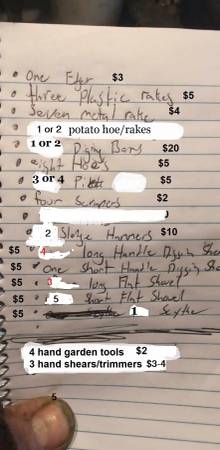 • One Edger $3
• three plastic rakes $5
• Seven metal rake $4
1 or 2 potato hoe/rakes
1 or 2 Diging Bars $20
• eight Hoes $5
3 or 4 $5
• four Scrapers $2
2 Sledge Hammers $10
$5 • 4 long Handle Diggin
$5 • one Short Handle Diggin
$5 • 3 long Flat Shovel
$5 • 5 Short Flat Shovel
$5 • 1 Scythe
4 hand garden tools $2
3 hand shears/trimmers $3-4
5